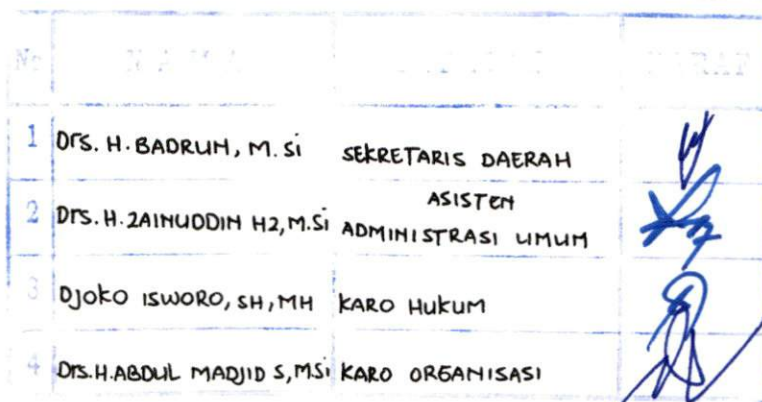 No NAMA PARAF
1 Drs. H. BADRUN, M. Si SEKRETARIS DAERAH
2 Drs. H. ZAINUDDIN HZ, M.Si ASISTEN
ADMINISTRASI UMUM
3 DJOKO ISWORO, SH, MH KARO HUKUM
4 Drs. H. ABDUL MADJID S, MSi KARO ORGANISASI